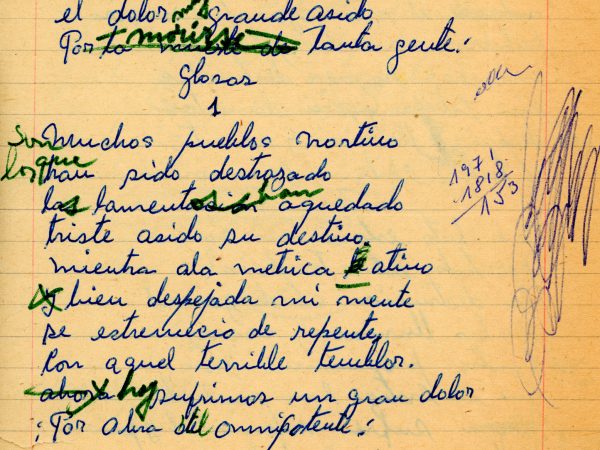 el dolor mas grande asido
Por ta muerte de morirse tanta gente.
Glosas
1
Son Muchos pueblos nortino
los que han sido destrozado
las lamentosion han aquedado
triste asido su destino.
mientra ala metrica atino
y bien despejada mi mente
se estremecio de repente
Con aquel terrible temblor.
ahora hoy sufrimos un gran dolor
Por obra del omnipotente.
1971
1818
153